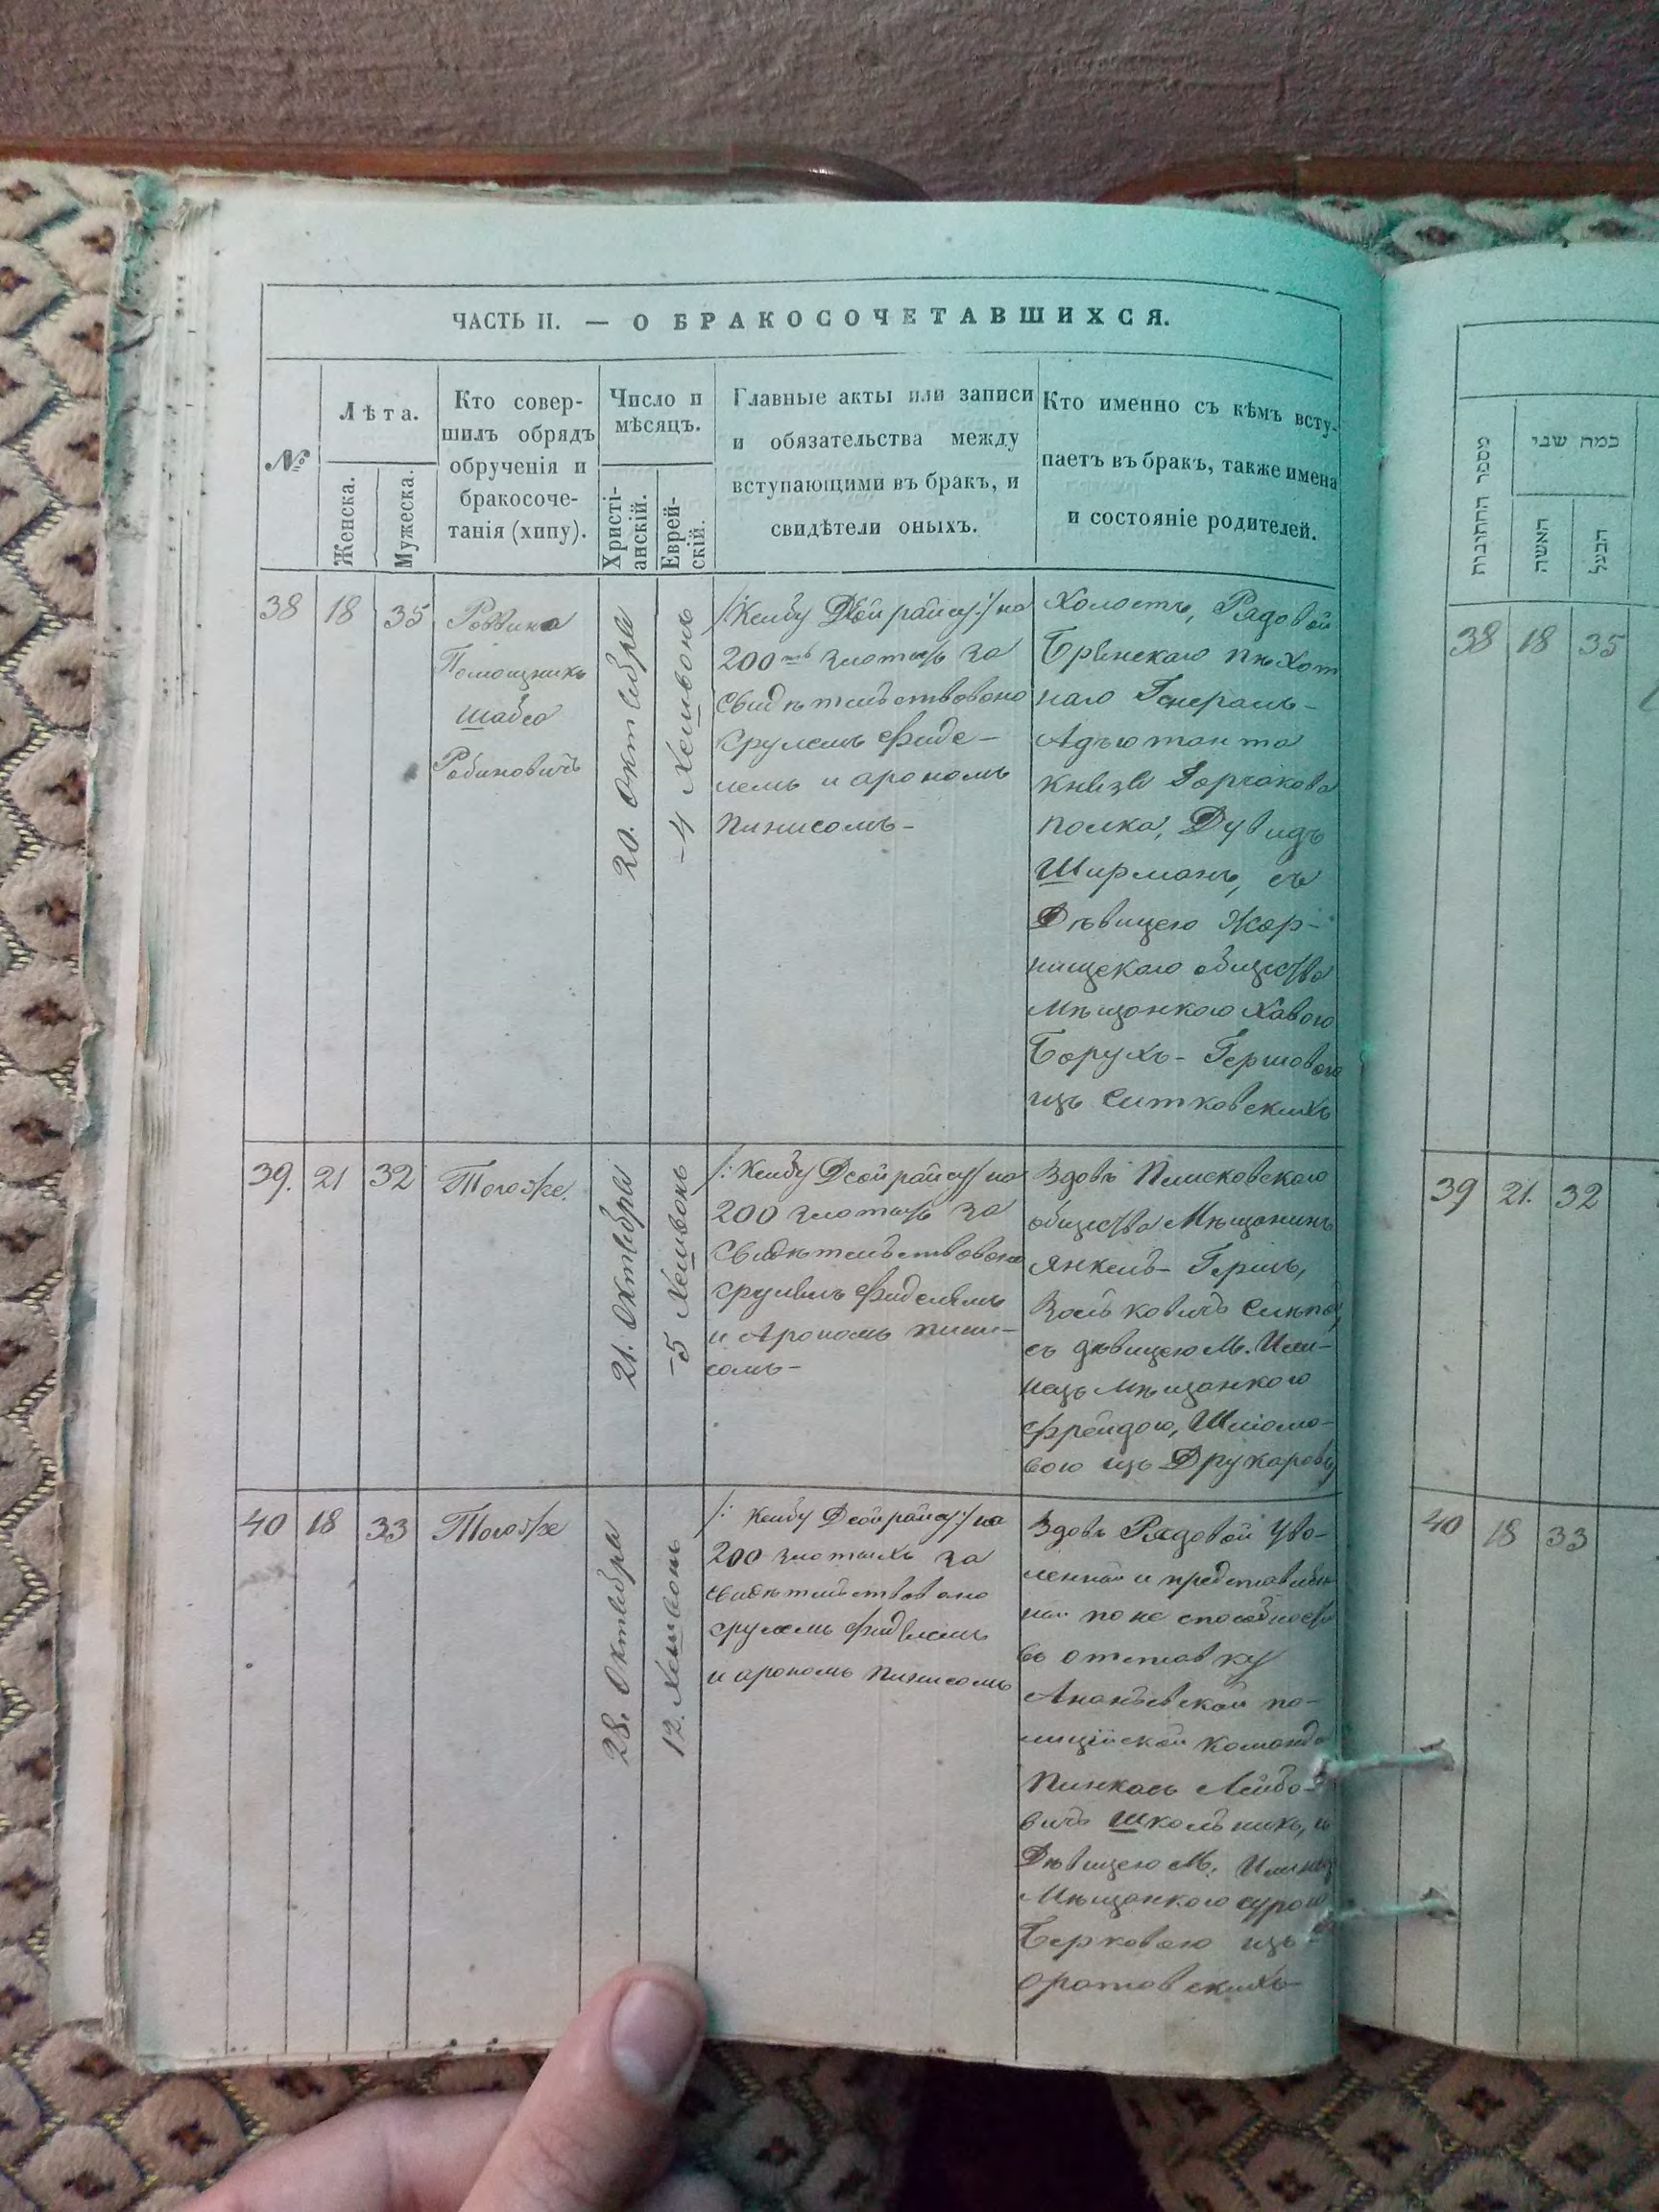 ЧАСТЬ II. — О БРАКОСОЧЕТАВШИХСЯ.
№
Лѣта.
Женска.
Мужеска.
Кто совер-
шилъ обрядъ
обрученія и
бракосоче-
танія (хипу).
Число и
мѣсяцъ.
Христі-
анскій.
Еврей-
скій.
Главные акты или записи
и обязательства между
вступающими въ бракъ, и
свидѣтели оныхъ.
Кто именно съ кѣмъ всту-
паетъ въ бракъ, также имена
и состояніе родителей.
38
18
35
Раввина
Помощникъ
Шабса
Рабиновичъ
20. Октября
-4 Хешвонъ
на
200 злотыхъ за
свидѣтельствовано
Срулемъ Фиде-
лемъ и Арономъ
Пинисомъ-
Холостъ, Рядовой
Брянскаго пѣхот
наго Генералъ-
Адъютанта
Князя Горчакова
полка, Дувидъ
Ширманъ, съ
Дѣвицею Жор-
нищскаго общества
Мѣщанкою Хавою
Борухъ-Гершовою
изъ Ситковскихъ
39.
21
32
Тогоже.
21. Октября
-5 Хешвонъ
на
200 злотыхъ за
свидѣтельствовано
Срулемъ Фиделемъ
и Арономъ Пини-
сомъ-
Вдовъ Пписковскаго
общества Мѣщанинъ
Янкель-Гершъ,
съ дѣвицею М. Илин-
пецъ Мѣщанкою
Фрейдою, Шліомо-
вою изъ Друкаровъ
40
18
33
Тогоже
28. Октября
12. Хешвонъ
на
200 злотыхъ за
свидѣтельствовано
Срулемъ Фиделемъ
и Арономъ Пинисомъ
Вдовъ Рядовой Уво-
ленной и представлен
ной по не способности
въ отставку
Ананьевской по-
лицiйской команды
Пинкасъ Лейбо-
вичъ Школьникъ, съ
Дѣвицею М.
Мѣщанкою Сурою
Берковою изъ
Оратовскихъ
מספר החתונות
כמה שני
האשה
הבעל
38
18
35
39
21.
32
40
18
33